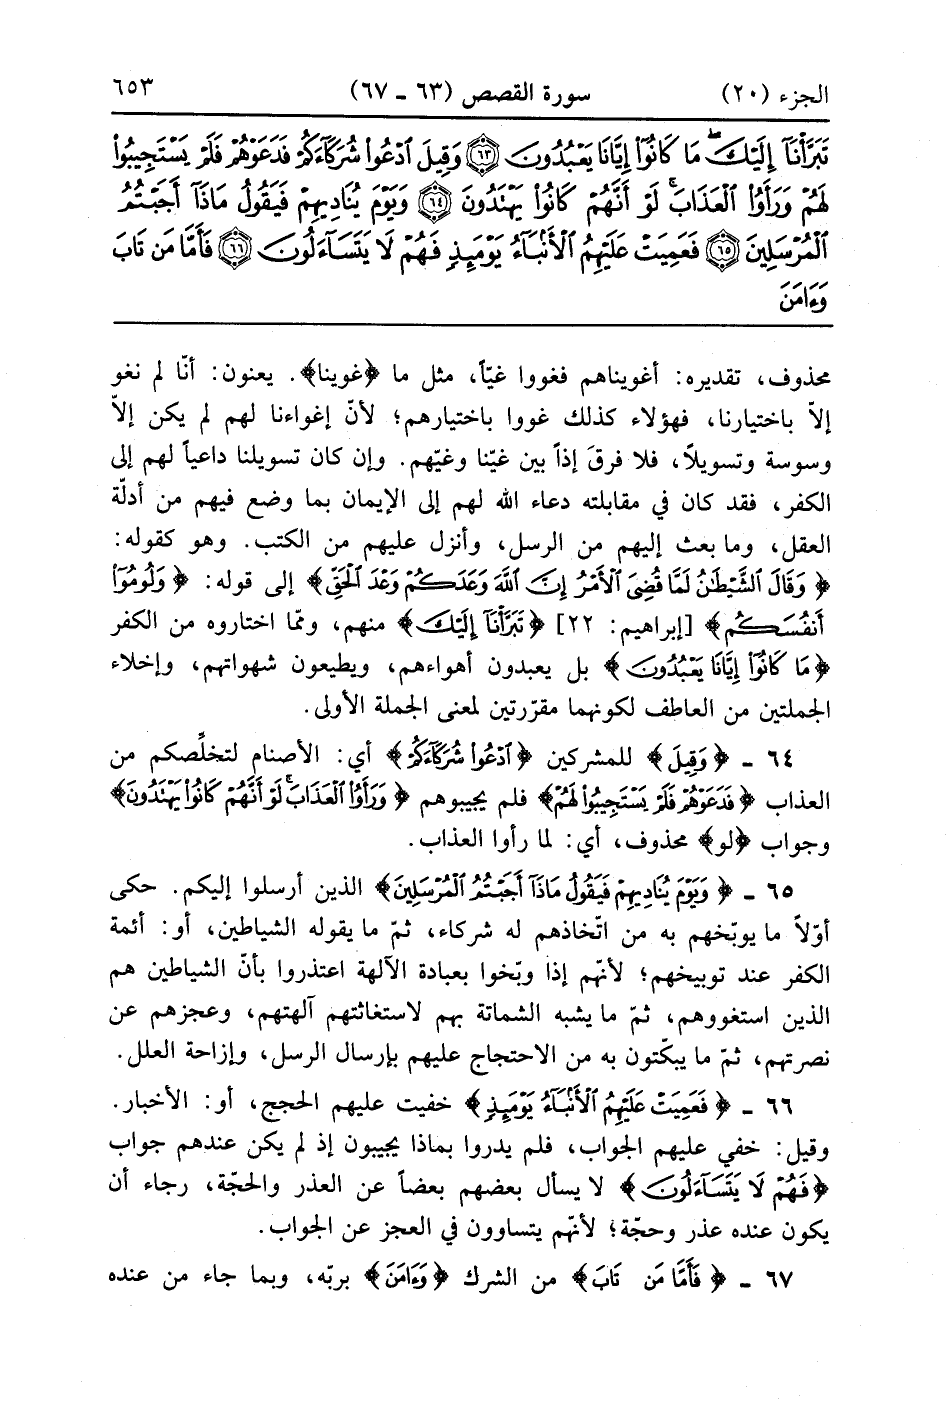 الجزء (٢٠) سورة القصص (٦٣ ـ ٦٧) ٦٥٣
تَبَرَّأْنَآ إِلَيْكَ ۖ مَا كَانُوٓا۟ إِيَّانَا يَعْبُدُونَ ﴿٦٣﴾ وَقِيلَ ٱدْعُوا۟ شُرَكَآءَكُمْ فَدَعَوْهُمْ فَلَمْ يَسْتَجِيبُوا۟
لَهُمْ وَرَأَوُا۟ ٱلْعَذَابَ ۚ لَوْ أَنَّهُمْ كَانُوا۟ يَهْتَدُونَ ﴿٦٤﴾ وَيَوْمَ يُنَادِيهِمْ فَيَقُولُ مَاذَآ أَجَبْتُمُ
ٱلْمُرْسَلِينَ ﴿٦٥﴾ فَعَمِيَتْ عَلَيْهِمُ ٱلْأَنۢبَآءُ يَوْمَئِذٍ فَهُمْ لَا يَتَسَآءَلُونَ ﴿٦٦﴾ فَأَمَّا مَن تَابَ
وَءَامَنَ
محذوف، تقديره: أغويناهم فغووا غيّاً، مثل ما ﴿غوينا﴾. يعنون: أنّا لم نغو
إلاّ باختيارنا، فهؤلاء كذلك غووا باختيارهم؛ لأنّ إغواءنا لهم لم يكن إلاّ
وسوسة وتسويلاً، فلا فرقَ إذاً بين غيّنا وغيّهم. وإن كان تسويلنا داعياً لهم إلى
الكفر، فقد كان في مقابلته دعاء الله لهم إلى الإيمان بما وضع فيهم من أدلّة
العقل، وما بعث إليهم من الرسل، وأنزل عليهم من الكتب. وهو كقوله:
﴿وَقَالَ ٱلشَّيْطَٰنُ لَمَّا قُضِىَ ٱلْأَمْرُ إِنَّ ٱللَّهَ وَعَدَكُمْ وَعْدَ ٱلْحَقِّ﴾ إلى قوله: ﴿وَلُومُوٓا۟
أَنفُسَكُم﴾ [إبراهيم: ٢٢] ﴿تَبَرَّأْنَآ إِلَيْكَ﴾ منهم، وممّا اختاروه من الكفر
﴿مَا كَانُوٓا۟ إِيَّانَا يَعْبُدُونَ﴾ بل يعبدون أهواءهم، ويطيعون شهواتهم، وإخلاء
الجملتين من العاطف لكونهما مقرّرتين لمعنى الجملة الأولى.
٦٤ ـ ﴿وَقِيلَ﴾ للمشركين ﴿ٱدْعُوا۟ شُرَكَآءَكُمْ﴾ أي: الأصنام لتخلّصكم من
العذاب ﴿فَدَعَوْهُمْ فَلَمْ يَسْتَجِيبُوا۟ لَهُمْ﴾ فلم يجيبوهم ﴿وَرَأَوُا۟ ٱلْعَذَابَ ۚ لَوْ أَنَّهُمْ كَانُوا۟ يَهْتَدُونَ﴾
وجواب ﴿لو﴾ محذوف، أي: لما رأوا العذاب.
٦٥ ـ ﴿وَيَوْمَ يُنَادِيهِمْ فَيَقُولُ مَاذَآ أَجَبْتُمُ ٱلْمُرْسَلِينَ﴾ الذين أرسلوا إليكم. حكى
أوّلاً ما يوبّخهم به من اتّخاذهم له شركاء، ثمّ ما يقوله الشياطين، أو: أئمة
الكفر عند توبيخهم؛ لأنّهم إذا وبّخوا بعبادة الآلهة اعتذروا بأنّ الشياطين هم
الذين استغووهم، ثمّ ما يشبه الشماتة بهم لاستغاثتهم آلهتهم، وعجزهم عن
نصرتهم، ثمّ ما يبكّتون به من الاحتجاج عليهم بإرسال الرسل، وإزاحة العلل.
٦٦ ـ ﴿فَعَمِيَتْ عَلَيْهِمُ ٱلْأَنۢبَآءُ يَوْمَئِذٍ﴾ خفيت عليهم الحجج، أو: الأخبار.
وقيل: خفي عليهم الجواب، فلم يدروا بماذا يجيبون إذ لم يكن عندهم جواب
﴿فَهُمْ لَا يَتَسَآءَلُونَ﴾ لا يسأل بعضهم بعضاً عن العذر والحجّة، رجاء أن
يكون عنده عذر وحجّة؛ لأنّهم يتساوون في العجز عن الجواب.
٦٧ ـ ﴿فَأَمَّا مَن تَابَ﴾ من الشرك ﴿وَءَامَنَ﴾ بربّه، وبما جاء من عنده